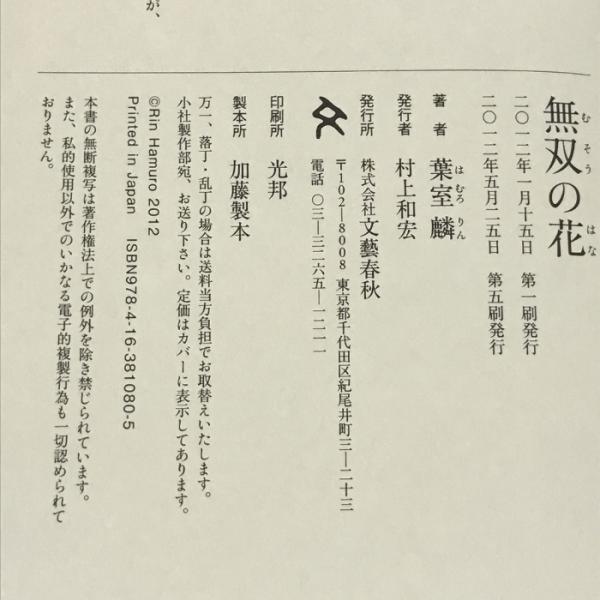 が、
無双の花
むそう はな
二〇一二年一月十五日 第一刷発行
二〇一二年五月二五日 第五刷発行
著者 葉室麟
はむろ りん
発行者 村上和宏
発行所 株式会社文藝春秋
〒102―8008 東京都千代田区紀尾井町三―二十三
電話 〇三―三二六五―一二一一
印刷所 光邦
製本所 加藤製本
万一、落丁・乱丁の場合は送料当方負担でお取替えいたします。
小社製作部宛、お送り下さい。定価はカバーに表示してあります。
©Rin Hamuro 2012
Printed in Japan ISBN978-4-16-381080-5
本書の無断複写は著作権法上での例外を除き禁じられています。
また、私的使用以外でのいかなる電子的複製行為も一切認められて
おりません。